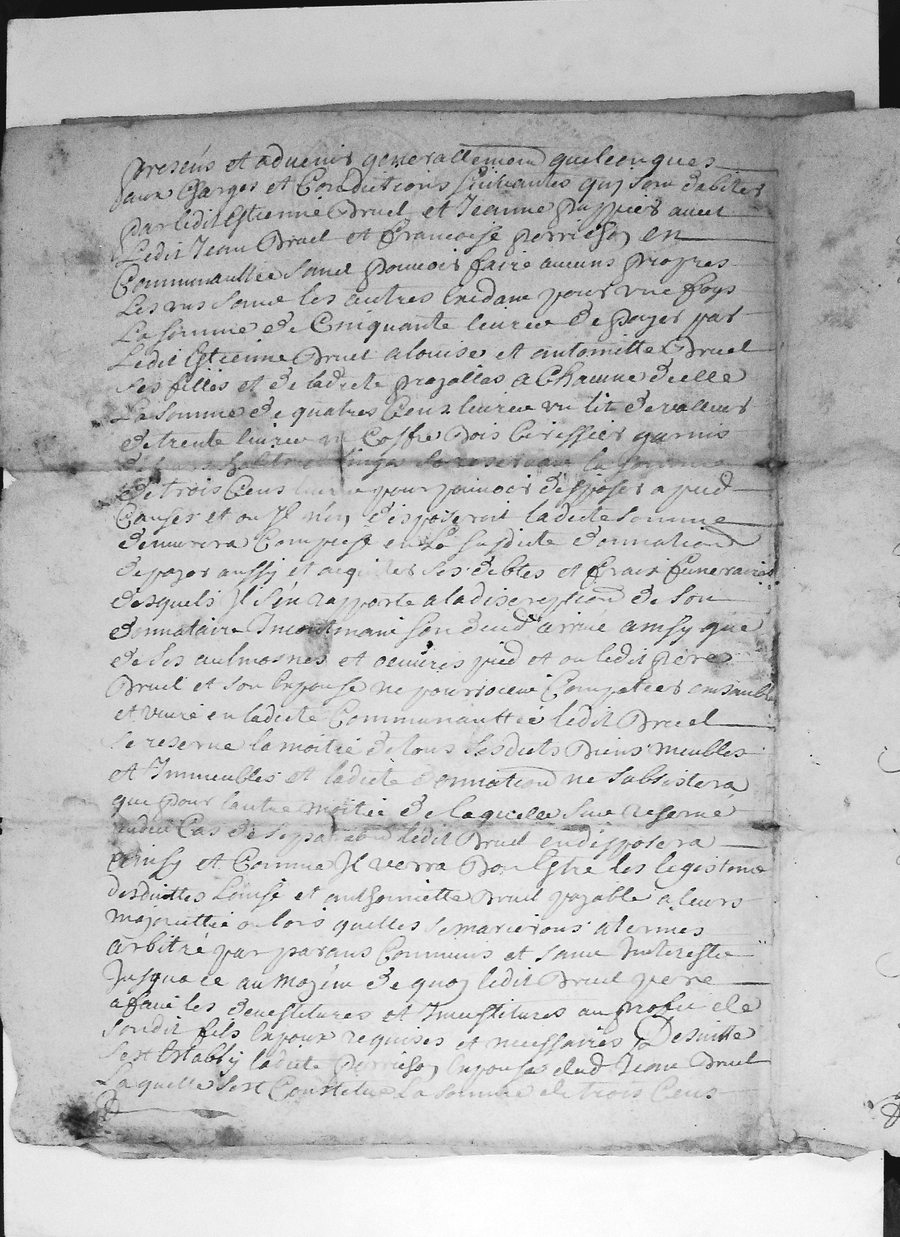 presens et aduenir generallement quelconques
aux Charges et Conditions suiuantes quj sont d'abiter
par ledit Estienne Bruel et Jeanne puppier auec
ledit Jean Bruel et francoise perrichon en
Communauttée sans pouuoir faire aucuns propres
Les uns sans les autres excedant pour une foys
La somme de Cinquante liures de payer par
Ledit Estienne Bruel a louise et antoinette Bruel
ses filles et de ladicte a Chacune d'elle
La somme de quatres Cens liures un lit de valleur
de trente liures un Coffre Bois Cerissier garnis
de leurs habits linges se reseruant la somme
de trois Cens liures pour pouuoir disposer a pied
Causes et ou Il n'en disposeroit ladicte somme
demurera Comprise en La susdicte donnation
de payer aussy et acquiter ses debtes et fraix funeraires
desquels Il s'en rapporte a la discreption de son
donnataire Incontinant son deced arriué ainsy que
de ses aulmosnes et oeuures pied et ou ledit pere
Bruel et son Espouse ne pourroient Compatier ansamble
et viure en ladicte Communauttée ledit Bruel
se reserue la moitié de tous sesdicts Biens meubles
et Immeubles et ladicte donnation ne subsistera
que pour l'autre moitié de laquelle sure reserué
audit Cas de separation ledit Bruel en disposera
ainsy et Comme Il verra Bon Estre les legs
desdittes Louise et anthoinette Bruel payable a leurs
majorittée ou lors quelles se marieront a termes
arbitré par parans Communs et sans Interestz
Jusqua ce au moyen de quoy ledit Bruel pere
a faict les deuestitures et Inuestitures au profit de
sondit fils Expoux requises et necessaires De suitte
s'est Estably ladicte perrichon Espouse dud Jean Bruel
Laquelle s'est Constitué La somme de trois Cens